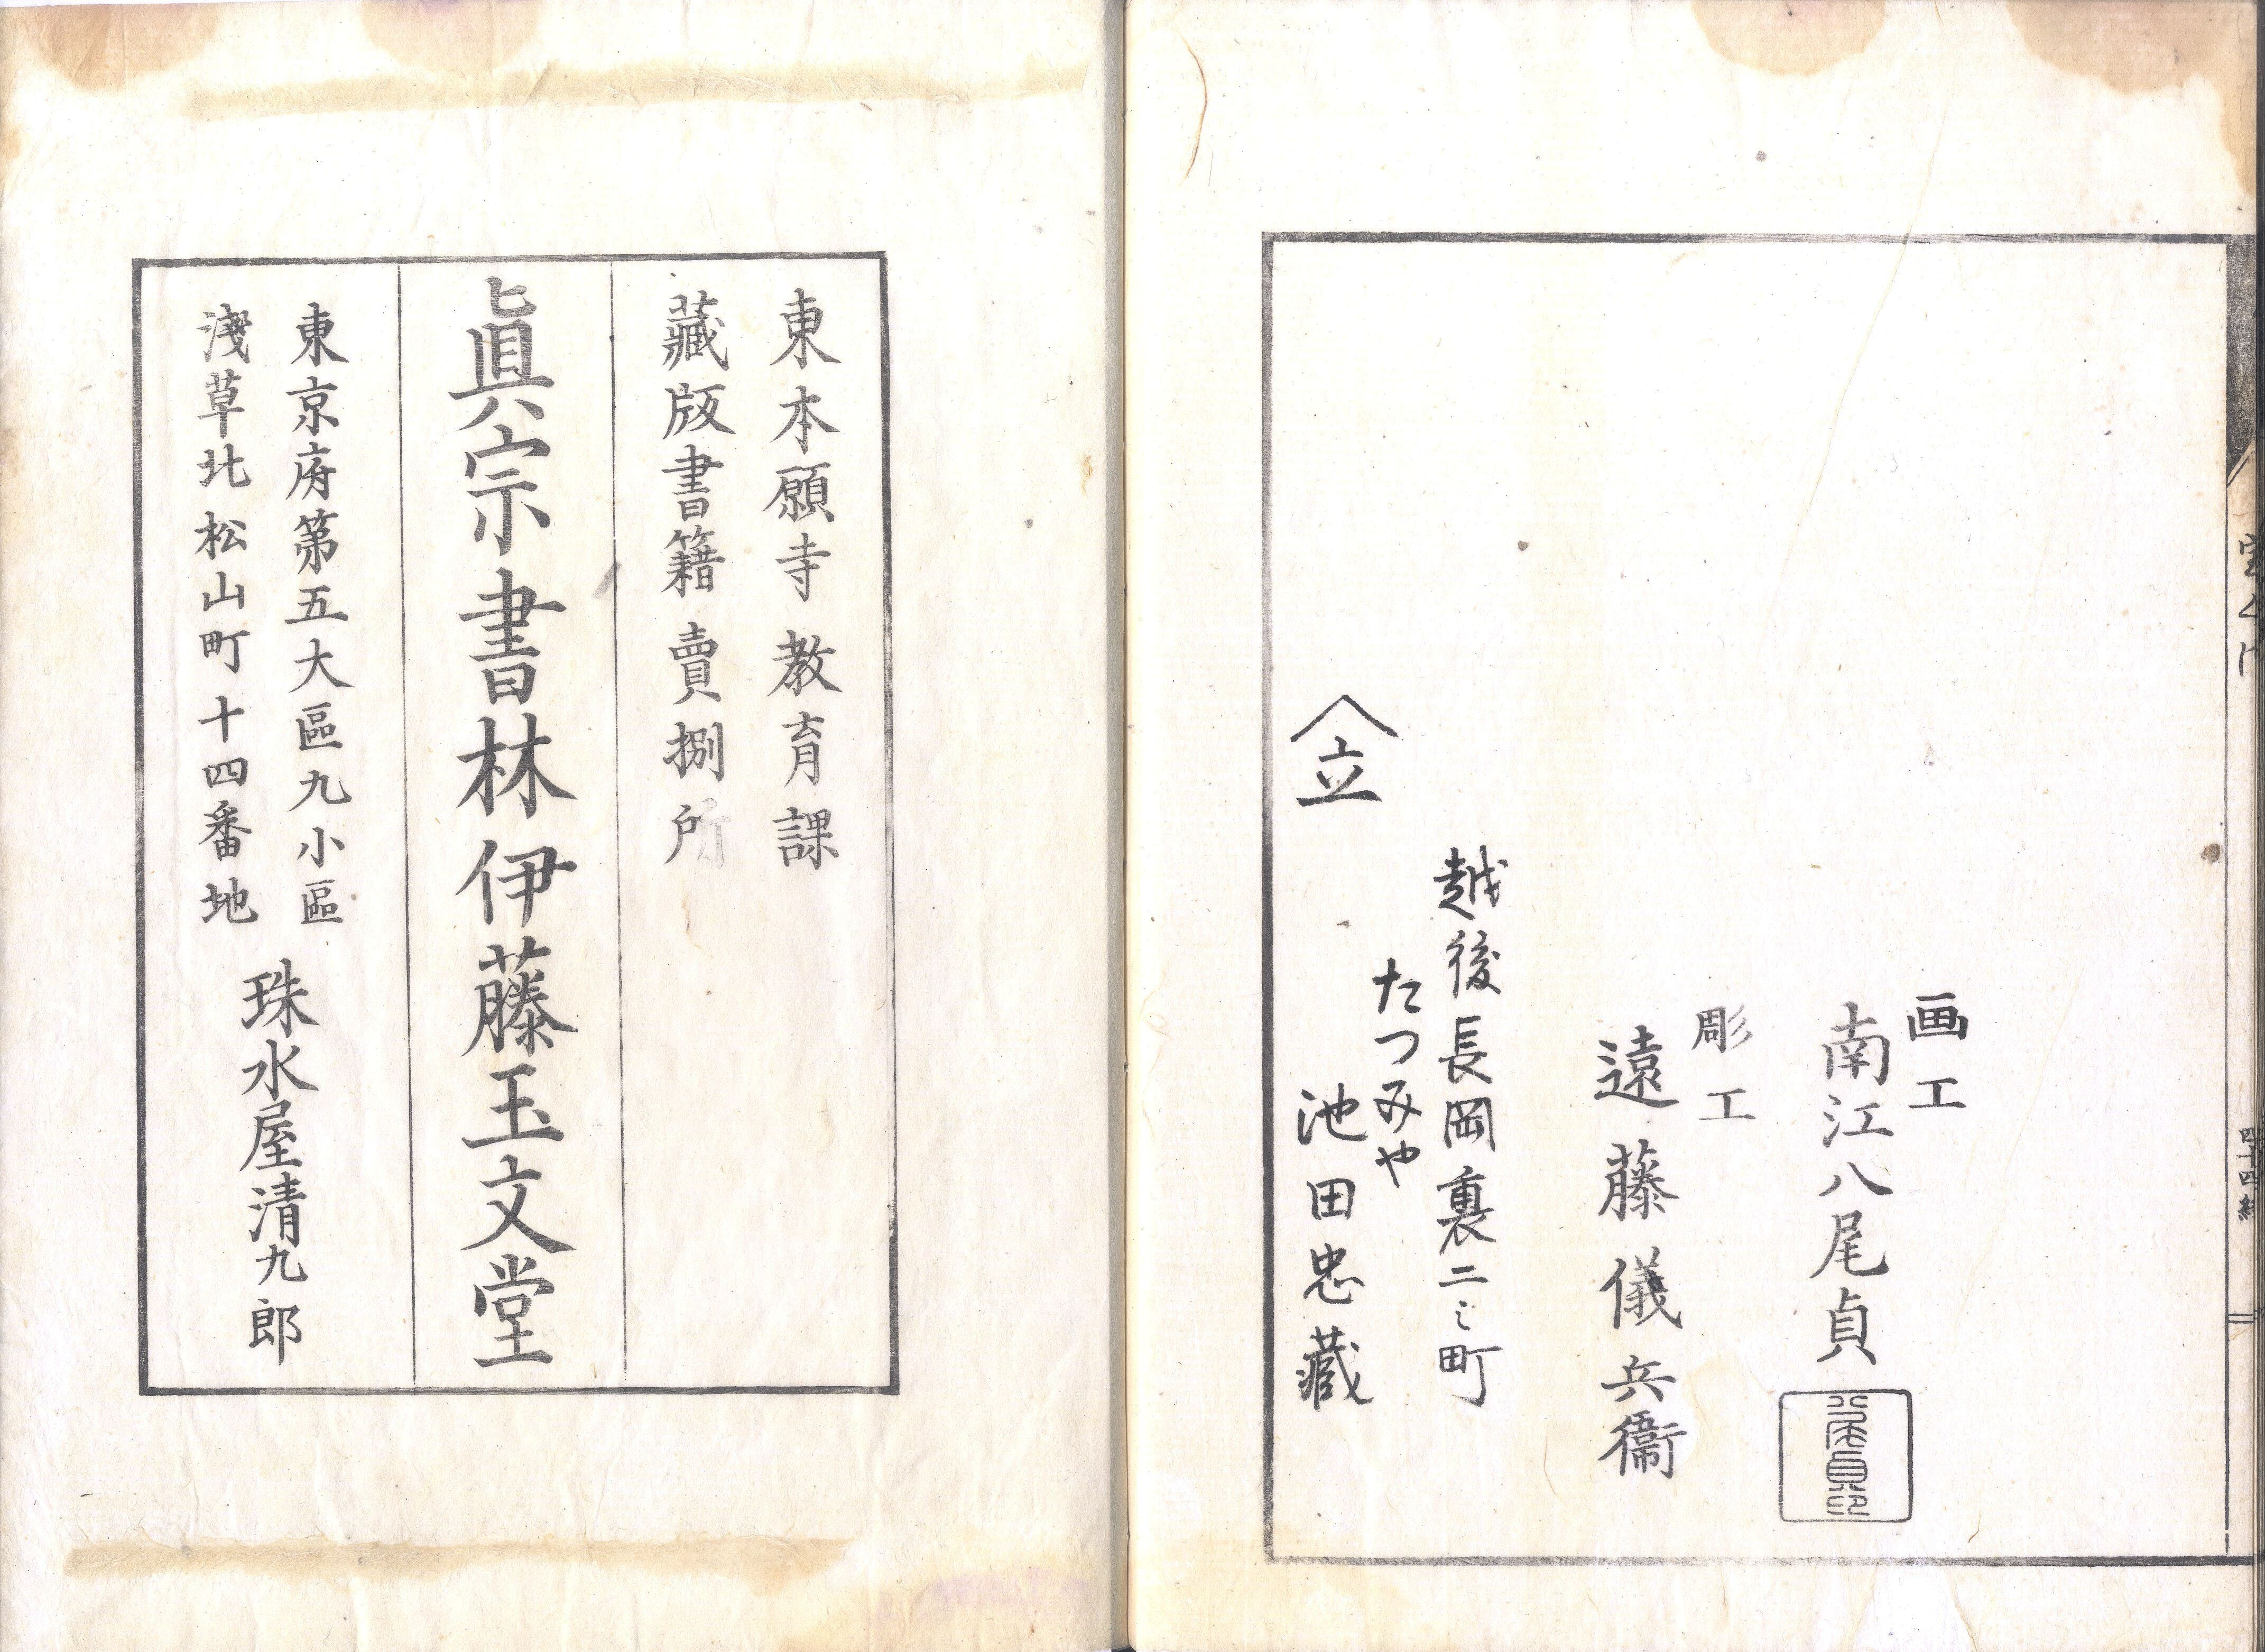 画工
南江八尾貞
彫工
遠藤儀兵衞
越後長岡裏二ミ町
たつみや
立
池田忠藏
四十四終
東本願寺教育課
藏版書籍賣捌所
眞宗書林伊藤玉文堂
東京府第五大區九小區
淺草北松山町十四番地
珠水屋清九郎